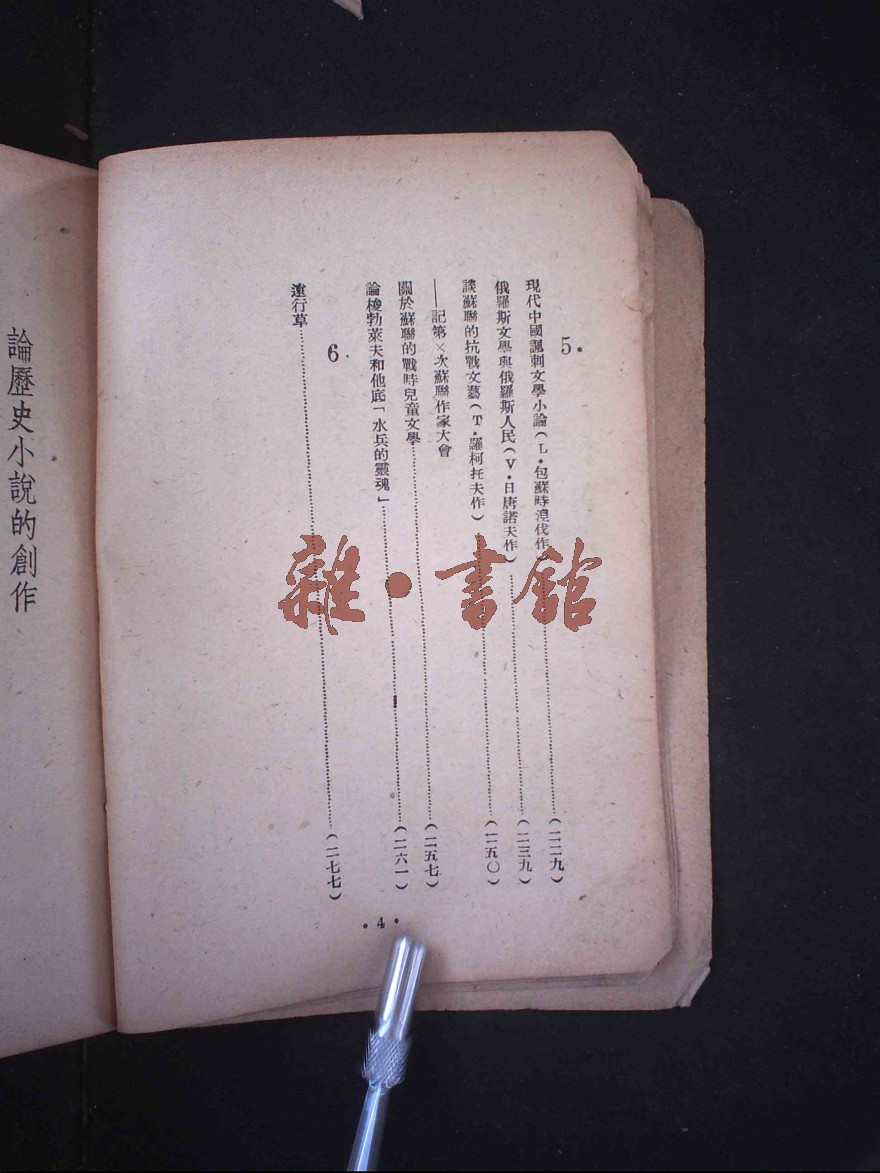 5.
現代中國諷刺文學小論(L·包蘇時湼伐作)……(二二九)
俄羅斯文學與俄羅斯人民(V·日唐諾夫作)……(二三九)
談蘇聯的抗戰文藝(T·羅柯托夫作)……(二五〇)
——記第×次蘇聯作家大會
關於蘇聯的戰時兒童文學……(二五七)
論梭勃萊夫和他底「水兵的靈魂」……(二六一)
6.
遠行草……(二七七)
·4·
論歷史小說的創作
雜·書館